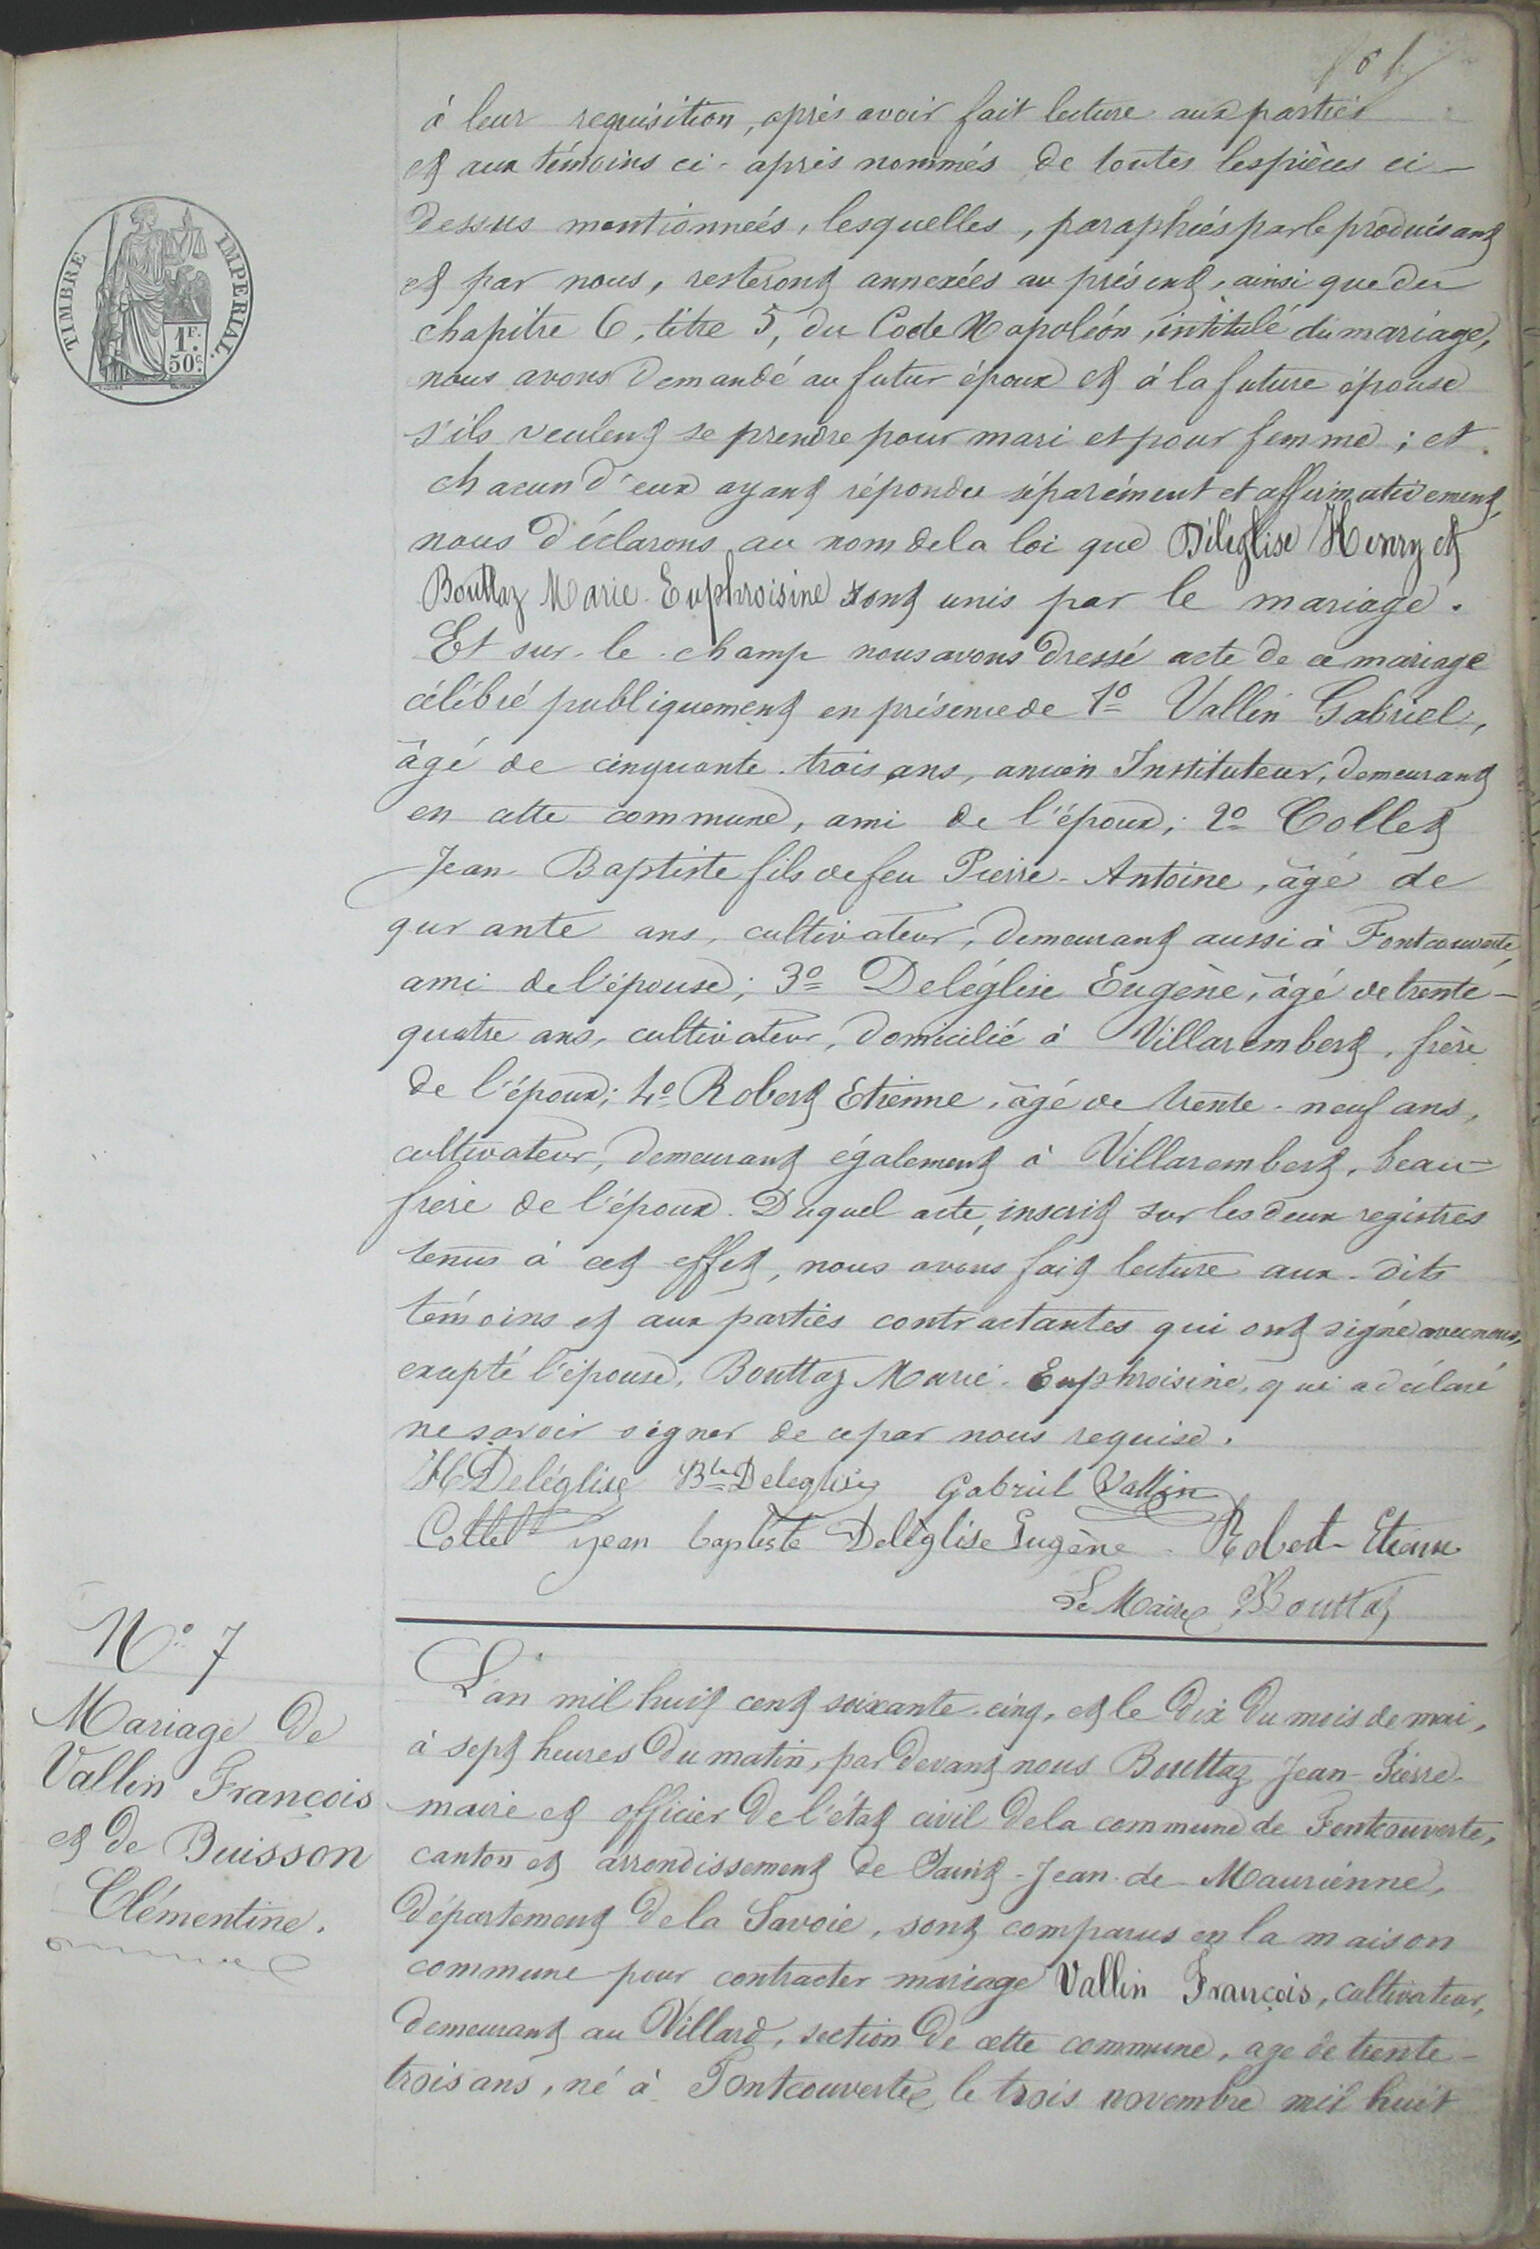 à leur requisition, après avoir fait lecture aux parties
et aux témoins ci-après nommés de toutes les pièces ci-
dessus mentionneés, lesquelles, paraphées par le produisant
et par nous, resteront annexées au présent, ainsi que du
chapitre 6, titre 5, du Code Napoléon, intitulé du mariage,
nous avons demandé au futur époux et à la future épouse
s'ils veulent se prendre pour mari et pour femme ; et
chacun d'eux ayant répondu séparément et affirmativement,
nous déclarons au nom de la loi que Déléglise Henry et
Bouttaz Marie-Euphroisine sont unis par le mariage.
Et sur-le-champ nous avons dressé acte de ce mariage
célébré publiquement en présence de 1o Vallin Gabriel,
âgé de cinquante-trois ans, ancien Instituteur, demeurant
en cette commune, ami de l'époux; 2o Collet
Jean-Baptiste fils de feu Pierre-Antoine, âgé de
qurante ans, cultivateur, demeurant aussi à Fontcouverte,
ami de l'épouse; 3o Deléglise Eugène, âgé de trente-
quatre ans, cultivateur, domicilié à Villarembert, frère
de l'époux; 4o Robert Etienne, âgé de trente-neuf ans,
cultivateur, demeurant également à Villarembert, beau-
frère de l'époux. Duquel acte, inscrit sur les deux registres
tenus à cet effet, nous avons fait lecture aux-dits
témoins et aux parties contractantes qui ont signé avec nous,
excepté l'épouse, Bouttaz Marie-Euphroisine, qui a déclaré
ne savoir signer de ce par nous requise.
H Deléglise Bte Deleglise Gabriel Vallin
Collet jean baptiste Deléglise Eugène Robert Etienne
Le Maire Bouttaz
No 7
Mariage de
Vallin François
et de Buisson
Clémentine.
L'an mil huit cent soixante-cinq, et le dix du mois de mai,
à sept heures du matin, par devant nous Bouttaz Jean-Pierre
maire et officier de l'état civil de la commune de Fontcouverte,
canton et arrondissement de Saint-Jean-de-Maurienne,
département de la Savoie, sont comparus en la maison
commune pour contracter mariage Vallin François, cultivateur,
demeurant au Villard, section de cette commune, age de trente-
trois ans, né à Fontcouverte le trois novembre mil huit
TIMBRE IMPERIAL.
1F.
50c.